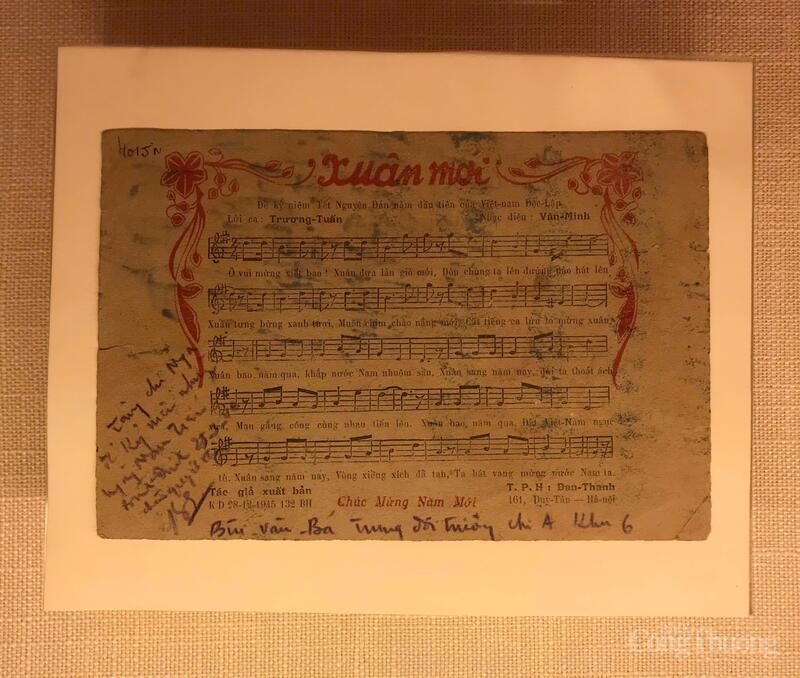 Xuân mới
Để kỷ niệm Tết Nguyên Đán năm đầu tiên của Việt-nam Độc-Lập
Lời ca: Trương-Tuấn Nhạc điệu: Văn-Minh
Ô vui mừng xiết bao! Xuân đưa làn gió mới, Đón chúng ta lên đường nào hát lên
Xuân tưng bừng xanh tươi, Muôn chim chào nắng mới, Cất tiếng ca líu lo mừng xuân
Xuân bao năm qua, khắp nước Nam nhuộm sầu, Xuân sang năm nay, đời ta thoát ách
xưa, Mau gắng công cùng nhau tiến lên. Xuân bao năm qua, Đất Việt-Nam ngục
tù. Xuân sang năm nay, Vòng xiềng xích đã tan, Ta hát vang mừng nước Nam ta.
Tác giả xuất bản
K D 28-12-1945 132 BH
Chúc Mừng Năm Mới
T. P. H: Đan-Thanh
161, Duy-Tân — Hà-nội
Tặng chị Nga
Bùi-văn-Bá trung đội trưởng chi A Khu 6
Công Thương